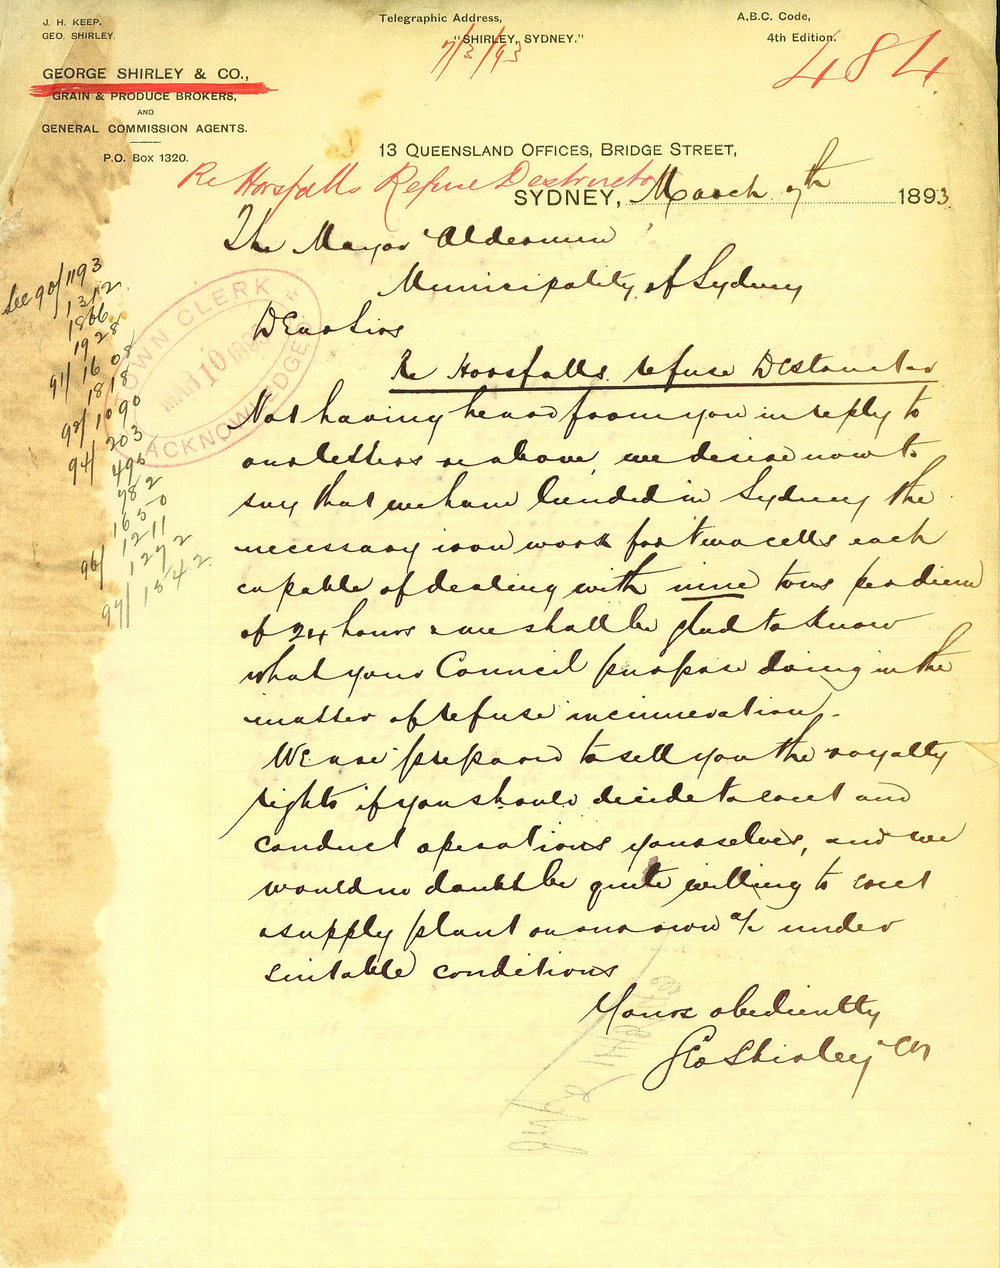 J. H. KEEP.
GEO. SHIRLEY.
Telegraphic Address,
"SHIRLEY, SYDNEY."
A.B.C. Code,
4th Edition.
7/3/93
484.
GEORGE SHIRLEY & CO.,
GRAIN & PRODUCE BROKERS,
AND
GENERAL COMMISSION AGENTS.
P.O. Box 1320.
13 QUEENSLAND OFFICES, BRIDGE STREET,
Re Horsfalls Refuse Destructor
SYDNEY, March 7th 1893
The Mayor & Aldermen
Municipality of Sydney
Dear Sirs
TOWN CLERK
MAR 10 1893
ACKNOWLEDGED
See 90/1193
1312
1866
1928
91/1608
1818
92/1090
94/203
496
782
1650
96/1211
1272
97/1542
Re Horsfalls refuse Destructor
Not having heard from you in reply to
our letters re above, we desire now to
say that we have landed in Sydney the
necessary iron work for two cells each
capable of dealing with nine tons per diem
of 24 hours & we shall be glad to know
what your Council purpose doing in the
matter of refuse incinneration.
We are prepared to sell you the royalty
rights if you should decide to erect and
conduct operations yourselves, and we
would no doubt be quite willing to erect
& supply plant on our own a/c under
suitable conditions
Yours obediently
Geo Shirley & Co